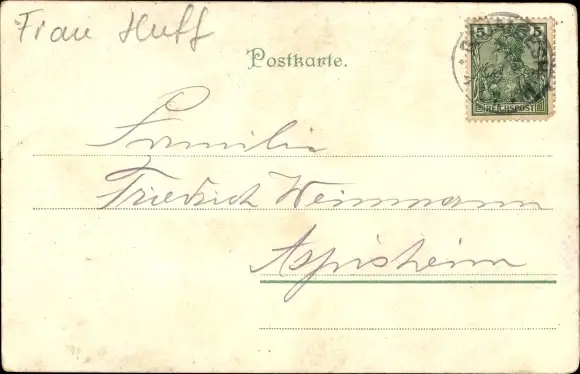 Frau Huff
Postkarte.
5
REICHSPOST
Familie
Friedrich Weinmann
Aspisheim